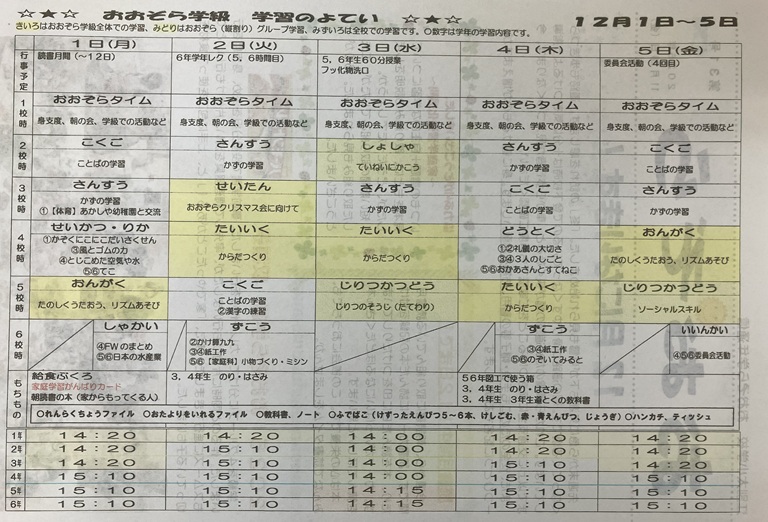 ☆★☆ おおぞら学級 学習のよてい ☆★☆ 12月1日～5日
きいろはおおぞら学級全体での学習、みどりはおおぞら（縦割り）グループ学習、みずいろは全校での学習です。〇数字は学年の学習内容です。
1日(月) 2日(火) 3日(水) 4日(木) 5日(金)
行事予定
読書月間（～12日） 6年学レク（5，6時間目） 5，6年生60分授業 委員会活動（4回目）
フッ化物洗口
1校時
おおぞらタイム おおぞらタイム おおぞらタイム おおぞらタイム おおぞらタイム
身支度、朝の会、学級での活動など 身支度、朝の会、学級での活動など 身支度、朝の会、学級での活動など 身支度、朝の会、学級での活動など 身支度、朝の会、学級での活動など
2校時
こくご さんすう しょしゃ さんすう こくご
ことばの学習 かずの学習 ていねいにかこう かずの学習 ことばの学習
3校時
さんすう せいたん さんすう こくご さんすう
かずの学習 おおぞらクリスマス会に向けて かずの学習 ことばの学習 かずの学習
①【体育】あかしや幼稚園と交流
4校時
せいかつ・りか たいいく たいいく どうとく おんがく
①かぞくにこにこだいさくせん からだつくり からだつくり ①②礼儀の大切さ たのしくうたおう、リズムあそび
③風とゴムの力 ③④3人のしごと
④とじこめた空気や水 ⑤⑥おかあさんとすてねこ
⑤⑥てこ
5校時
おんがく こくご じりつかつどう たいいく じりつかつどう
たのしくうたおう、リズムあそび ことばの学習 じりつのそうじ（たてわり） からだつくり ソーシャルスキル
②漢字の練習
6校時
しゃかい ずこう ずこう いいんかい
④FWのまとめ ②かけ算九九 ③④紙工作 ④⑤⑥委員会活動
⑤⑥日本の水産業 ③④紙工作 ⑤⑥のぞいてみると
⑤⑥【家庭科】小物づくり・ミシン
もちもの
給食ぶくろ 3．4年生 のり・はさみ 56年図工で使う箱
家庭学習がんばりカード 3．4年生 のり・はさみ
朝読書の本（家からもってくる人） 3．4年生 3年生道とくの教科書
〇れんらくちょうファイル 〇おたよりをいれるファイル 〇教科書、ノート 〇ふでばこ（けずったえんぴつ5～6本、けしごむ、赤・青えんぴつ、じょうぎ）〇ハンカチ、ティッシュ
1年 14：20 14：20 14：00 14：20 14：20
2年 14：20 15：10 14：00 14：20 14：20
3年 14：20 15：10 14：00 15：10 14：20
4年 15：10 15：10 14：00 15：10 15：10
5年 15：10 15：10 14：15 15：10 15：10
6年 15：10 15：10 14：15 15：10 15：10